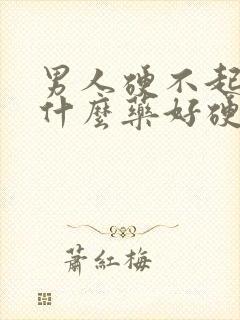 男人硬不起
什麼藥好硬
蕭紅梅